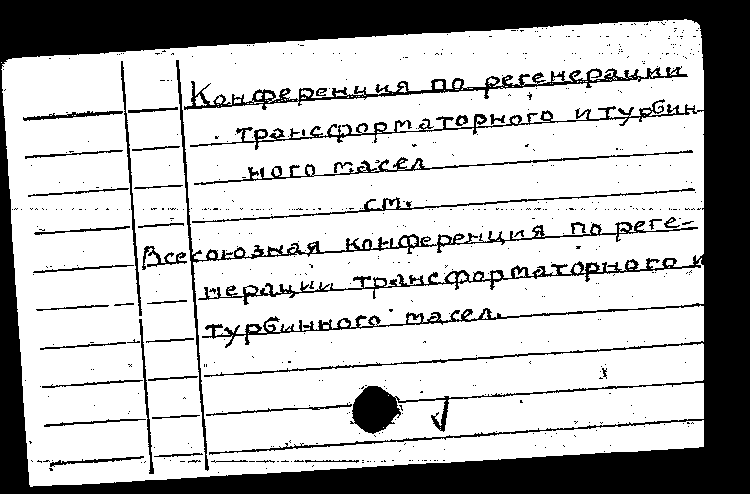 Конференция по регенерации
трансформаторного и турбин
ного масел
см.
Всесоюзная конференция по реге-
нерации трансформаторного и
турбинного масел.